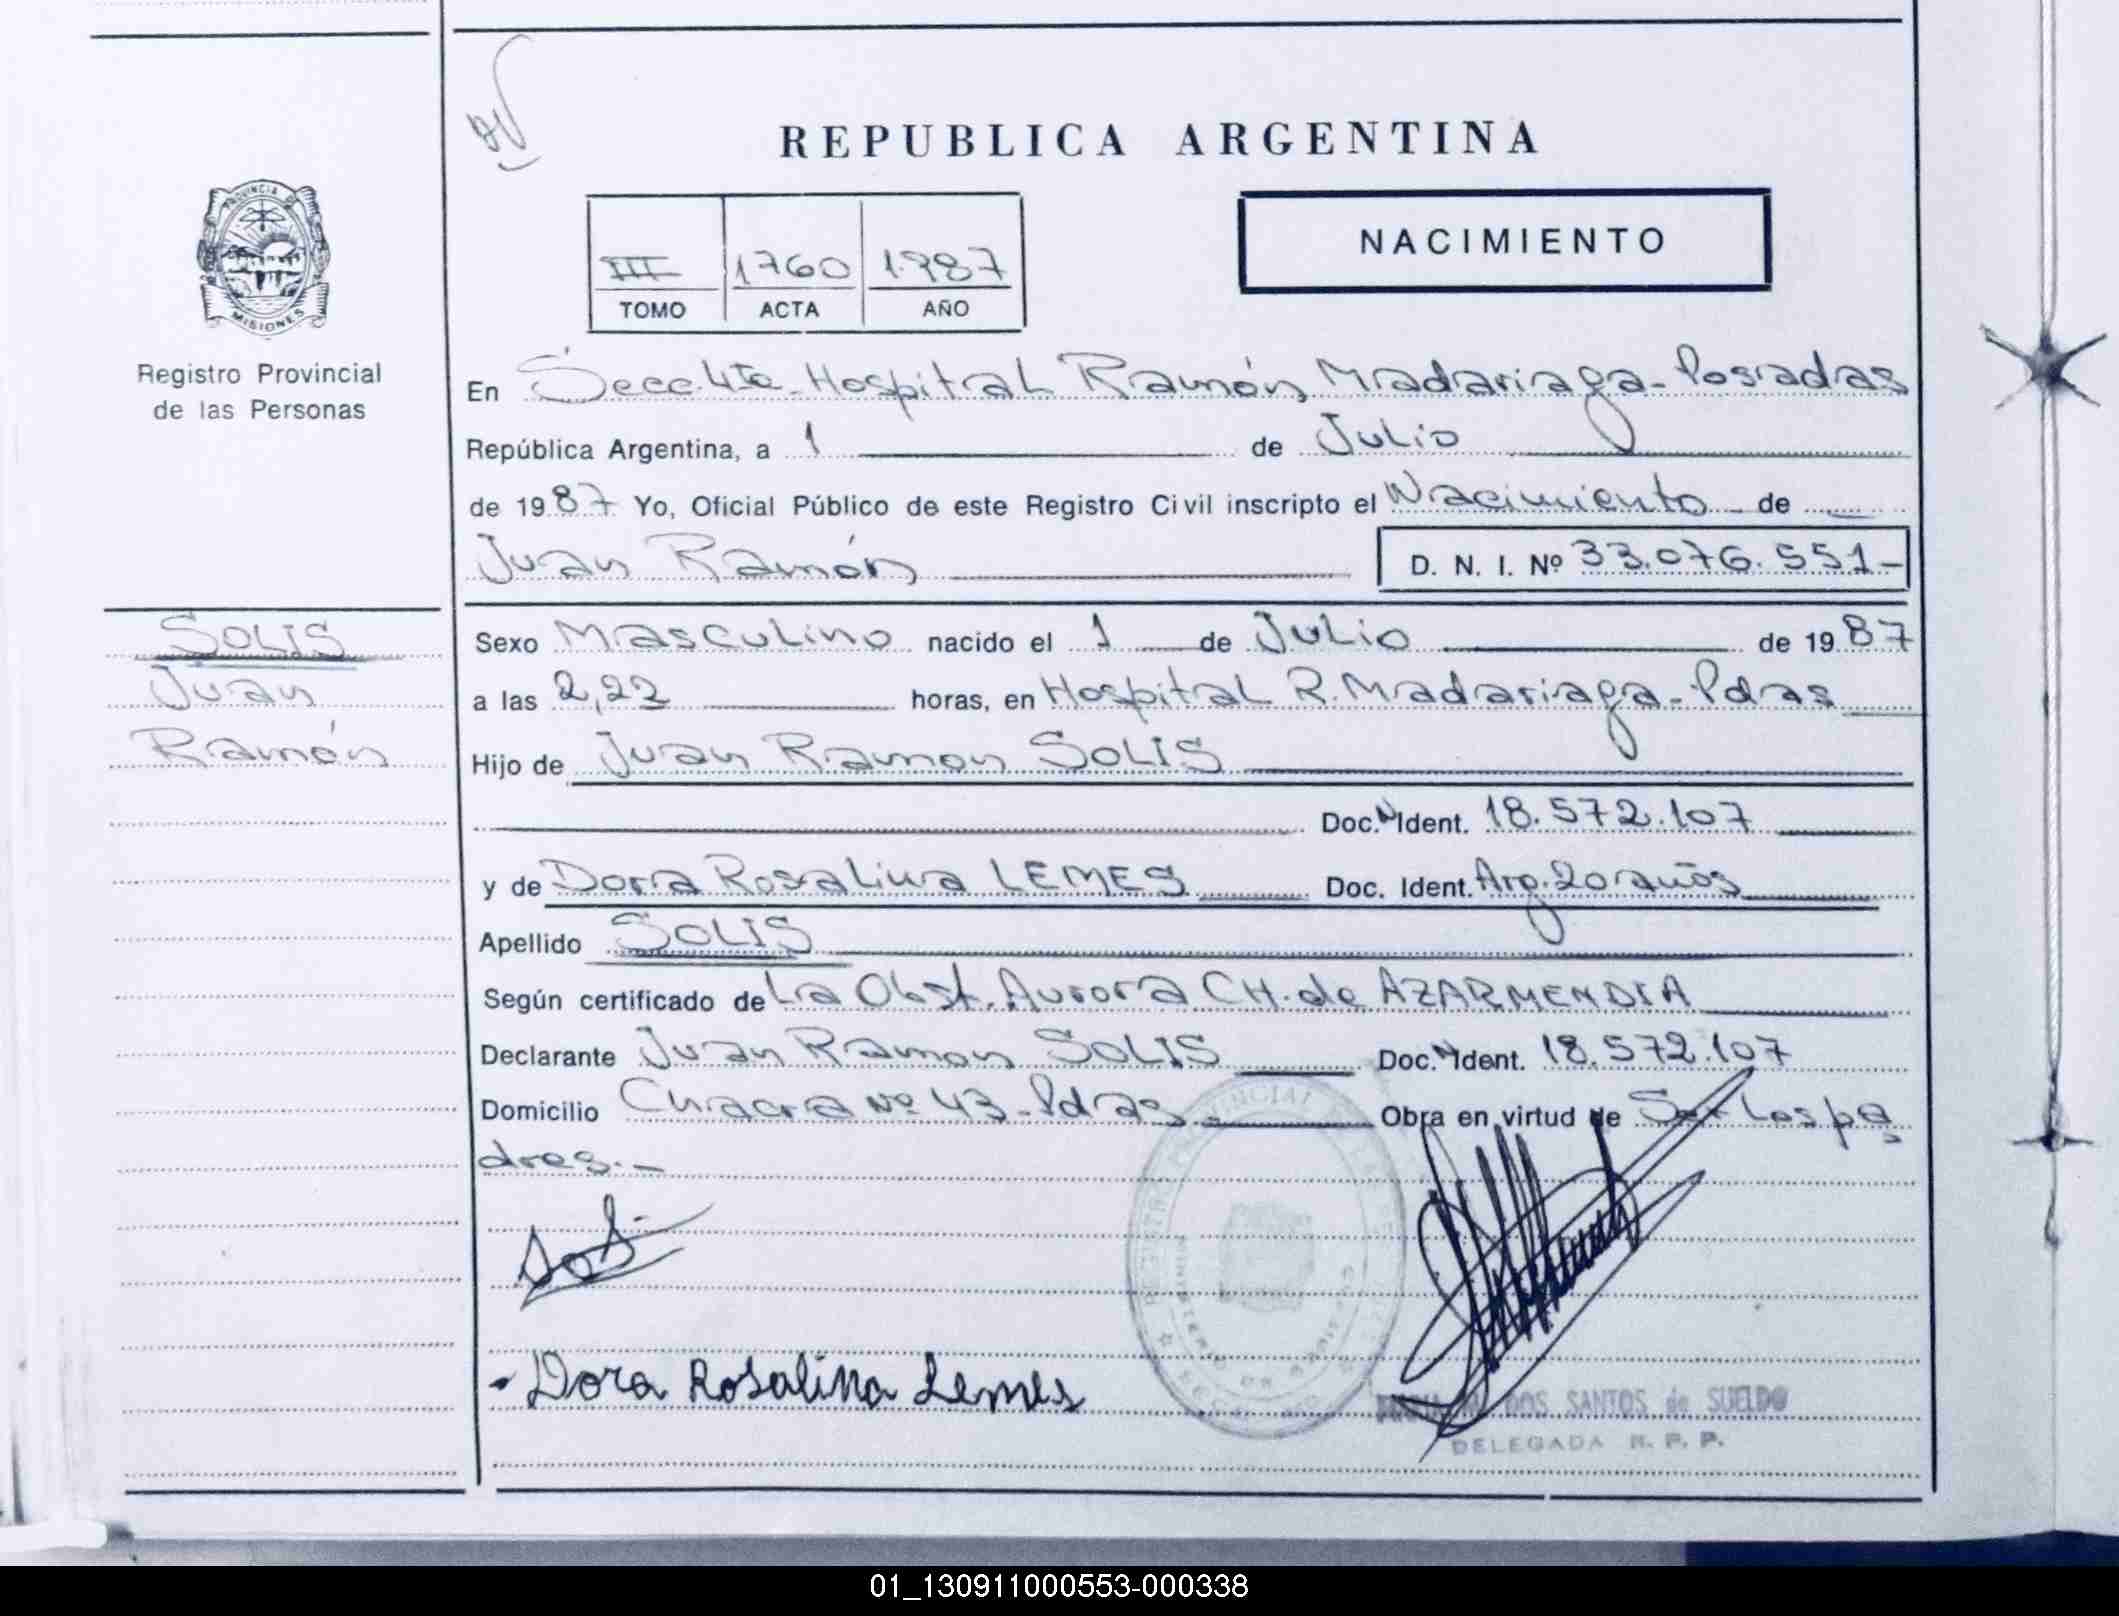 REPUBLICA ARGENTINA
PROVINCIA DE
MISIONES
III 1760 1.987
TOMO ACTA AÑO
NACIMIENTO
Registro Provincial
de las Personas
En Secc.4ta-Hospital Ramón Madariaga-Posadas
República Argentina, a 1 de Julio
de 1987 Yo, Oficial Público de este Registro Civil inscripto el Nacimiento de
Juan Ramón D. N. I. Nº 33.076.551-
SOLIS
Juan
Ramón
Sexo Masculino nacido el 1 de Julio de 1987
a las 2,22 horas, en Hospital R. Madariaga-Pdas
Hijo de Juan Ramon SOLIS
Doc.N Ident. 18.572.107
y de Dora Rosalina LEMES Doc. Ident. Arg. 20 años
Apellido SOLIS
Según certificado de La Obst. Aurora CH. de AZARMENDIA
Declarante Juan Ramon SOLIS Doc.N Ident. 18.572.107
Domicilio Chacra Nº 43-Pdas. Obra en virtud de Ser los pa
dres.-
Dora Rosalina Lemes
DOS SANTOS de SUELDO
DELEGADA R. P. P.
01_130911000553-000338